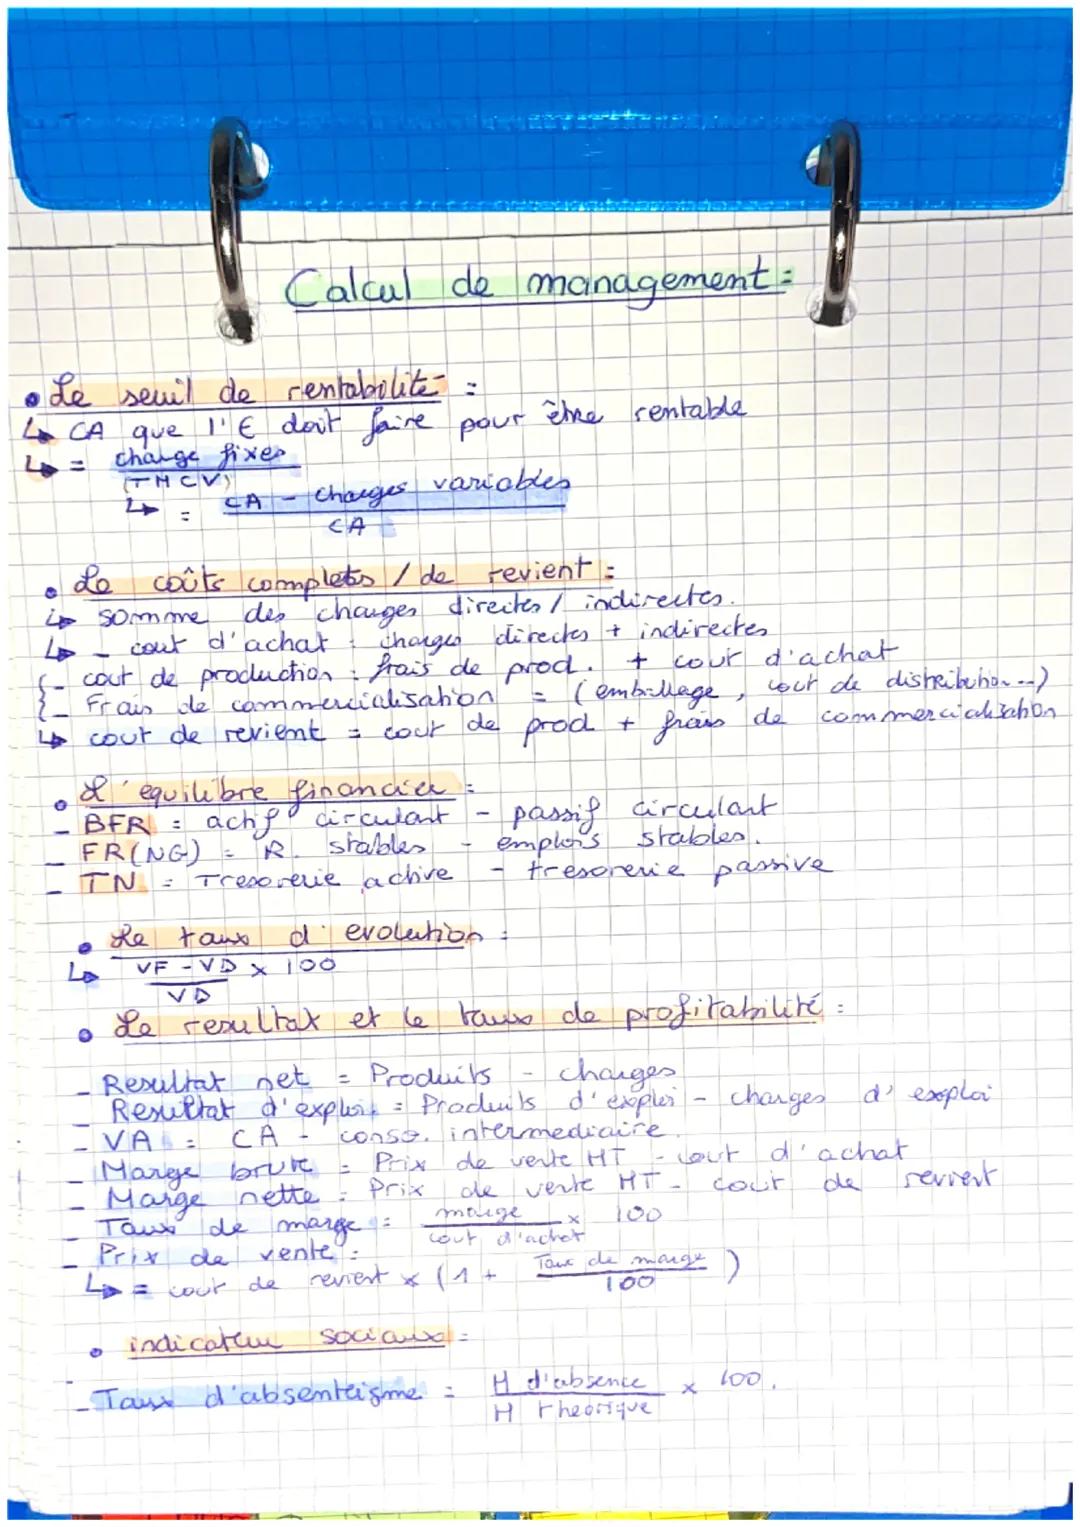 Calcul de management :
• Le seuil de rentabilité :
↳ CA que l'€ doit faire pour être rentable
↳ = charge fixes
(TMCV)
↳ = CA - charges variables
CA
• Le coûts complets / de revient :
↳ somme des charges directes / indirectes.
↳ - cout d'achat : charges directes + indirectes
{- cout de production : frais de prod. + cout d'achat
{- Frais de commercialisation = (emballage, cout de distribution...)
↳ cout de revient = cout de prod + frais de commercialisation
• L'equilibre financier :
- BFR = actif circulant - passif circulant
- FR(NG) = R. stables - emplois stables.
- TN = Tresorerie active - tresorerie passive
• Le taux d'evolution :
↳ VF - VD x 100
VD
• Le resultat et le taux de profitabilité :
- Resultat net = Produits - charges
Resultat d'exploi = Produits d'exploi - charges d'exploi
- VA = CA - conso. intermediaire.
- Marge brute = Prix de vente HT - cout d'achat
- Marge nette = Prix de vente HT - cout de revient
- Taux de marge = marge x 100
cout d'achat
- Prix de vente :
↳ = cout de revient x (1 + Taux de marge)
100
• indicateur sociaux :
- Taux d'absenteisme = H d'absence x 100.
H theorique